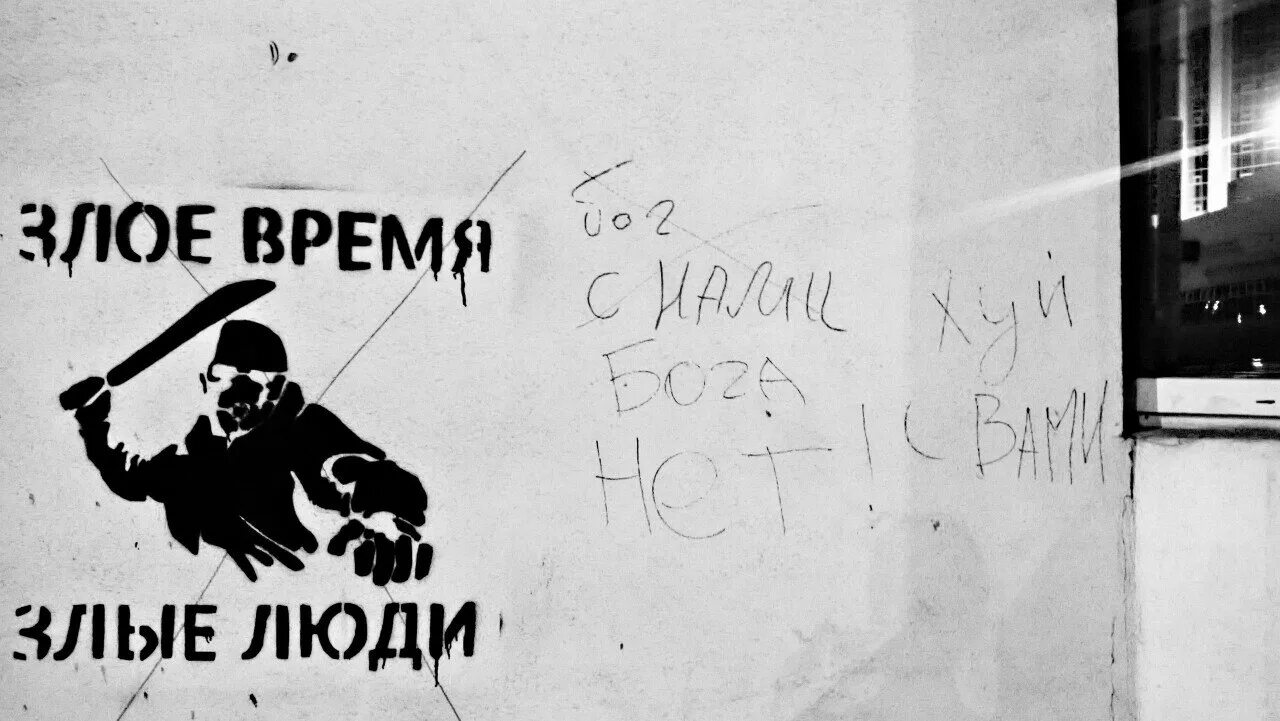 ЗЛОЕ ВРЕМЯ
ЗЛЫЕ ЛЮДИ
бог
с НАМИ
БОГА
Нет!
хуй
с ВАМИ